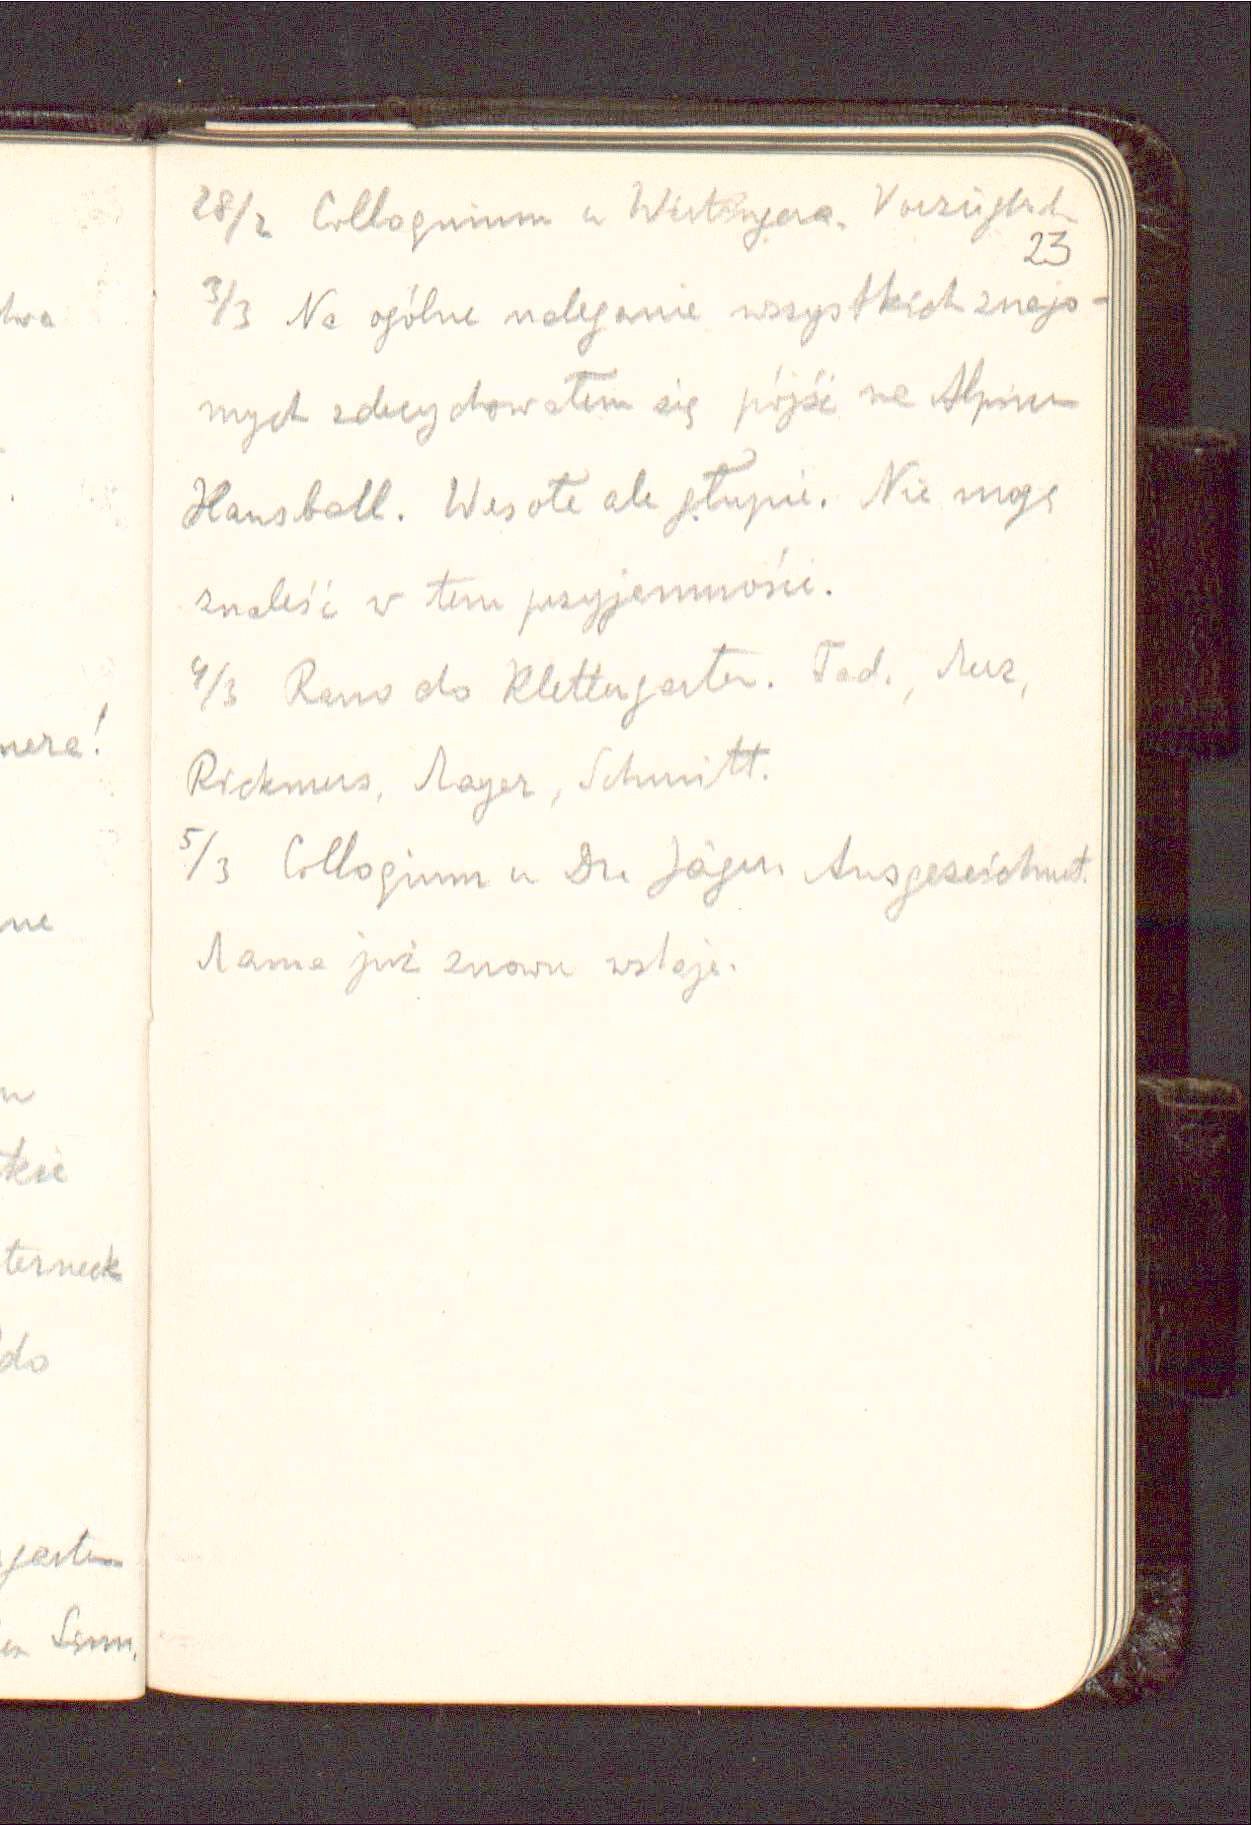 28/2 Colloquium u Wirtingera. Vorzüglich
23
3/3 Na ogólne naleganie wszystkich znajo-
mych zdecydowałem się pójść na Alpiner
Hausball. Wesołe ale głupie. Nie mogę
znaleść w tem przyjemności.
4/3 Rano do Klettergarten. Tad.,
Rickmers, Mayer, Schmitt.
5/3 Collogium u Dra Jägera Ausgezeichnet.
Mama już znowu wstaje.
twa
mera!
ne
kie
terneck
do
garten